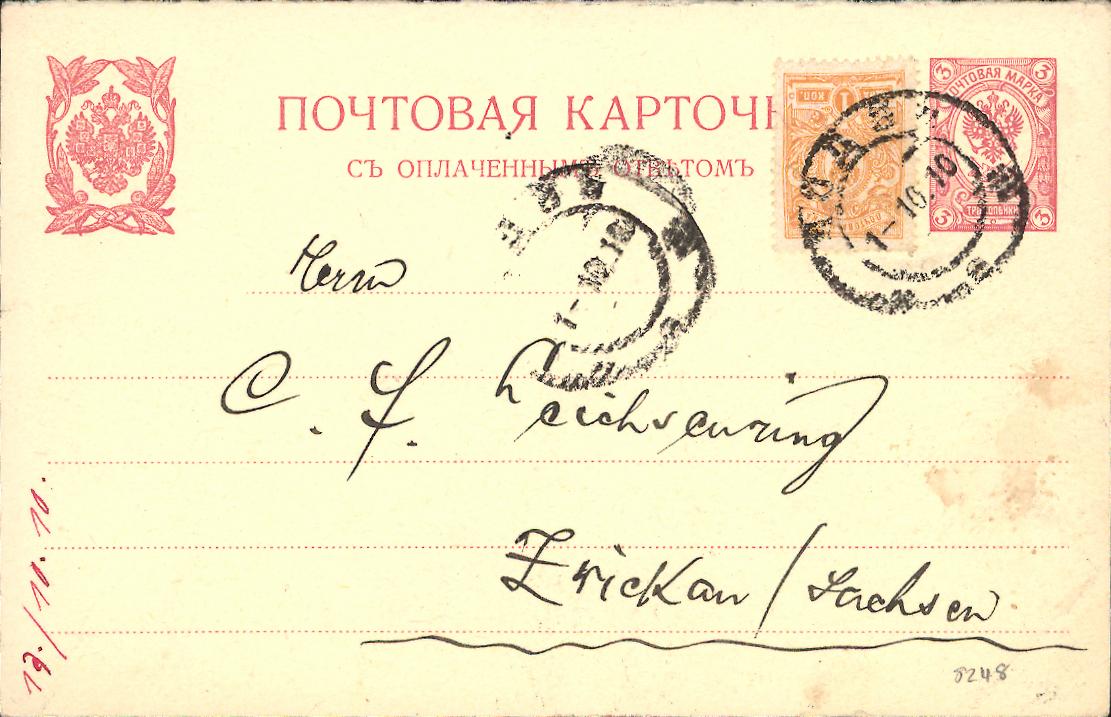 ПОЧТОВАЯ КАРТОЧ
СЪ ОПЛАЧЕННЫМЪ ОТВѢТОМЪ
3 ПОЧТОВАЯ МАРКА 3
3 ТРИ КОПѢЙКИ 3
1 КОП
1-10.10
1-10.10
Herrn
C. F. Leichsenring
Zwickau / Sachsen
19./10.10.
8248